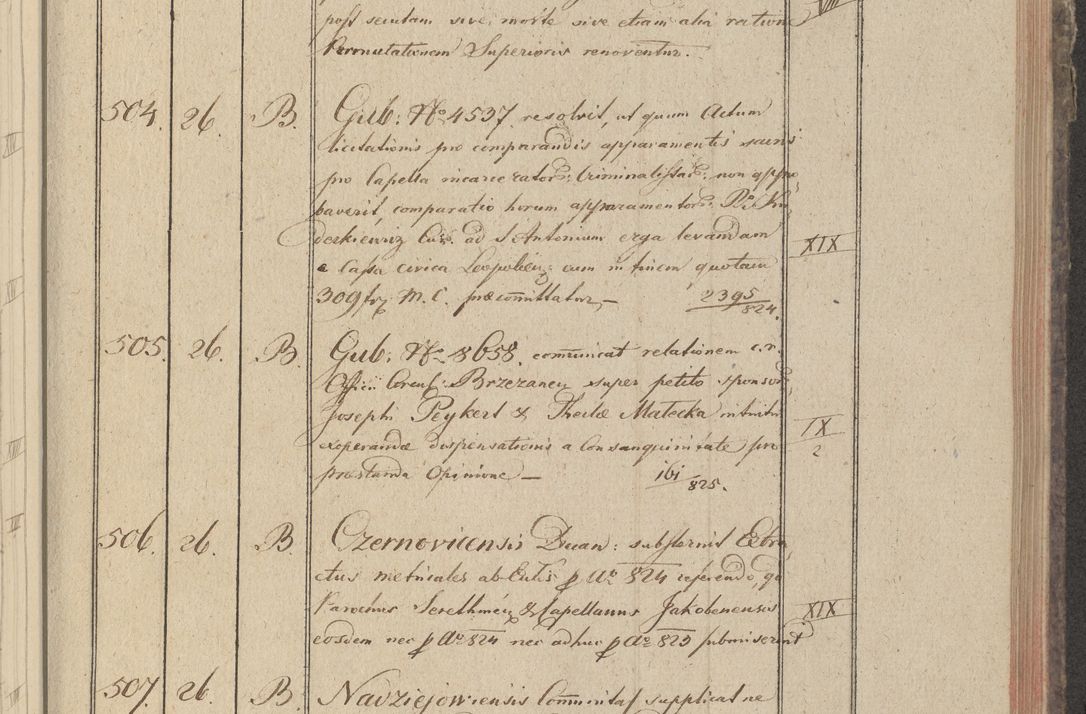 post secutam sive morte sive etiam alia ratione VIII
Permutationem Superioris renoventur.
504. 26. B. Gub: No 4537 resolvit, ut quum Actum
licitationis pro comparandis apparamentis sacris
pro Capella incarcerator: Criminalistar: non appro
baverit, comparatio horum apparamentor: Ro Ku
derkiewicz Cur. ad S. Antonium erga levandam
a Cassa civica Leopolien: eum in finem quotam XIX
309 frz M. C. præcom̄ittatur, — 2395/824.
505. 26. B. Gub: No 8658. com̄unicat relationem c. r.
Officii Circul: Brzezanen super petito sponsor:
Josephi Peykert & Theclæ Matecka intuitu
exoperandæ dispensationis a Consanguinitate pro IX/2
præstanda Opinione — ibi/825.
506. 26. B. Czernovicensis Decan: substernit Extra
ctus metricales ab Cultis p Ao 824 referendo, qd
Parochus Serethinen & Capellanus Jakobenensis XIX
eosdem nec p Ao 824 nec adhuc p Ao 825 submiserint
507. 26. B. Nadziejowiensis Com̄unitas supplicat ne